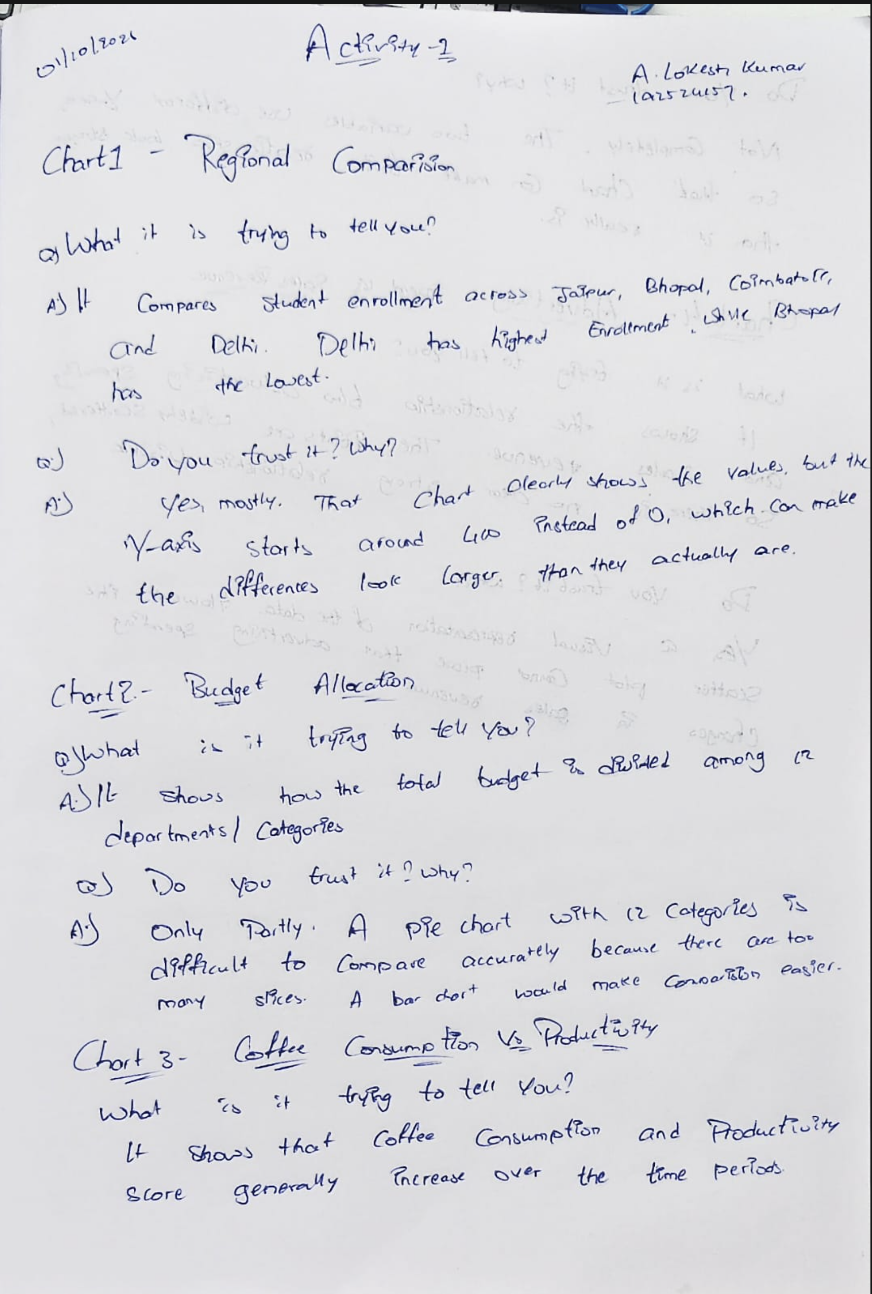 01/10/2026
Activity-1
A. Lokesh Kumar
192524157.
Chart1 - Regional Comparision
Q) What it is trying to tell you?
A) It Compares student enrollment across Jaipur, Bhopal, Coimbatore,
and Delhi. Delhi has highest Enrollment. while Bhopal
has the Lowest.
Q) Do you trust it? Why?
A) Yes, mostly. That Chart clearly shows the values, but the
Y-axis starts around 400 instead of 0, which can make
the differences look larger than they actually are.
Chart2 - Budget Allocation
Q) What is it trying to tell you?
A) It shows how the total budget is divided among 12
departments/ Categories
Q) Do you trust it? Why?
A) Only Partly. A pie chart with 12 Categories is
difficult to Compare accurately because there are too
many slices. A bar chart would make easier.
Chart 3 - Coffee Consumption Vs Productivity
What is it trying to tell you?
It shows that Coffee Consumption and Productivity
Score generally increase over the time periods